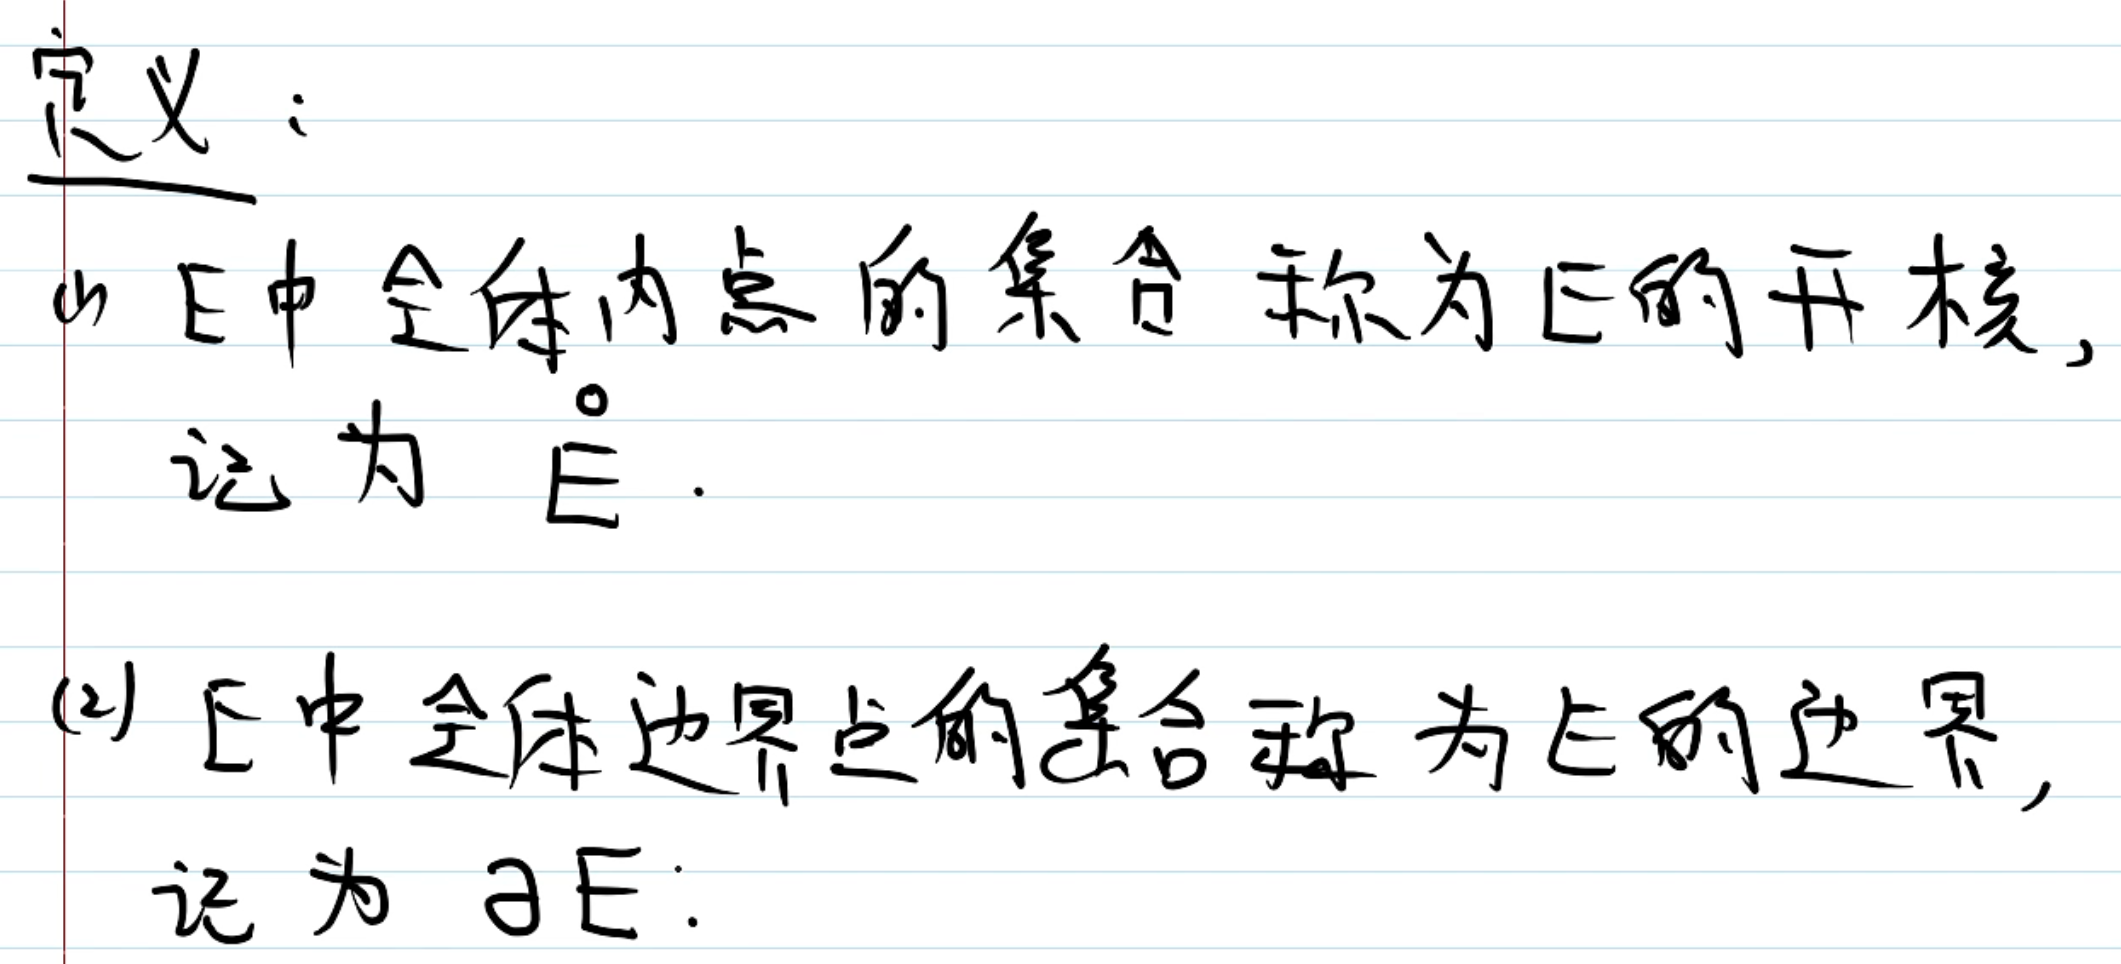 定义：
(1) E中全体内点的集合称为E的开核,
记为 E̊.
(2) E中全体边界点的集合称为E的边界,
记为 ∂E: